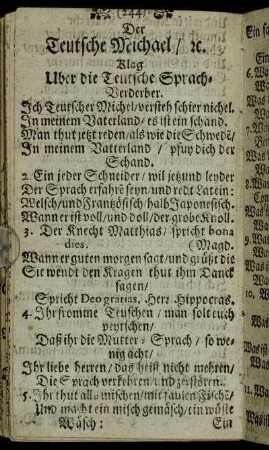 (244)
Der
Teutsche Meichael / ꝛc.
Klag
Uber die Teutsche Sprach-
Verderber.
Ich Teutscher Michel / versteh schier nichel.
In meinem Vaterland / es ist ein schand.
Man thut jetzt reden / als wie die Schwedẽ /
In meinem Vatterland / pfuy dich der
Schand.
2. Ein jeder Schneider / wil jetzund leyder
Der Sprach erfahrẽ seyn / und redt Latein:
Welsch / und Frantzösisch / halb Japonesisch.
Wann er ist voll / und doll / der grobe Knoll.
3. Der Knecht Matthias / spricht bona
dies. (Magd.
Wann er guten morgen sagt / und grüßt die
Sie wendt den Kragen thut ihm Danck
sagen /
Spricht Deo gratias, Herꝛ Hippocras.
4. Ihr fromme Teutschen / man solt euch
peytschen /
Daß ihr die Mutter-Sprach / so we-
nig acht /
Ihr liebe herren / das heist nicht mehren /
Die Sprach verkehren / und zerstören.
5. Ihr thut alls mischen / mit faulen Fischẽ /
Und macht ein misch gemäsch / ein wüste
Wäsch: Ein